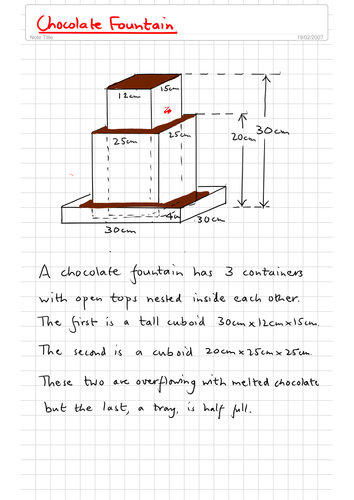 Chocolate Fountain
Note Title
19/02/2007
15cm
12cm
25cm
25cm
20cm
30cm
4cm
30cm
30cm
A chocolate fountain has 3 containers
with open tops nested inside each other.
The first is a tall cuboid 30cm x 12cm x 15cm.
The second is a cuboid 20cm x 25cm x 25cm.
These two are overflowing with melted chocolate
but the last, a tray, is half full.